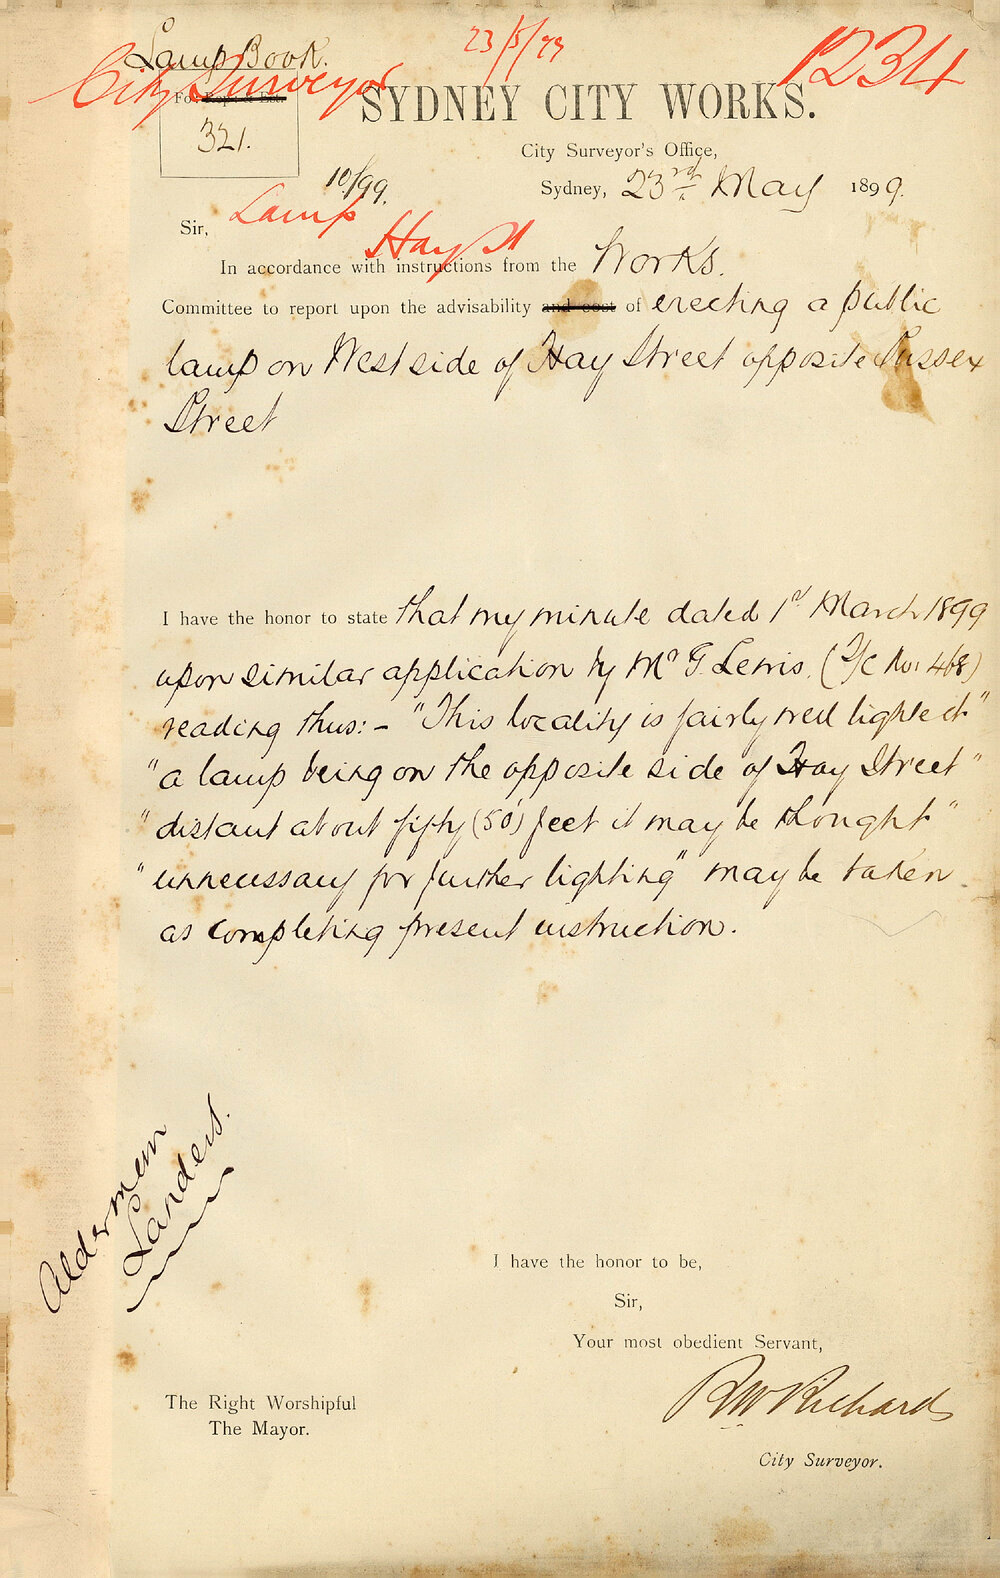 Lamp Book.
City Surveyor
23/5/99
1234
Fo.
321.
10/99.
SYDNEY CITY WORKS.
City Surveyor's Office,
Sydney, 23rd May 1899.
Lamp
Hay St
Sir,
In accordance with instructions from the Works.
Committee to report upon the advisability and cost of erecting a public
lamp on West side of Hay Street opposite Sussex
Street
I have the honor to state that my minute dated 1st March 1899
upon similar application by Mr G. Lewis. (L/C No: 468)
reading thus:- "This locality is fairly well lighted"
"a lamp being on the opposite side of Hay Street"
"distant about fifty (50') feet it may be thought"
"unnecessary for further lighting" may be taken
as completing present instruction.
Alderman
Landers.
I have the honor to be,
Sir,
Your most obedient Servant,
RW Richards
City Surveyor.
The Right Worshipful
The Mayor.